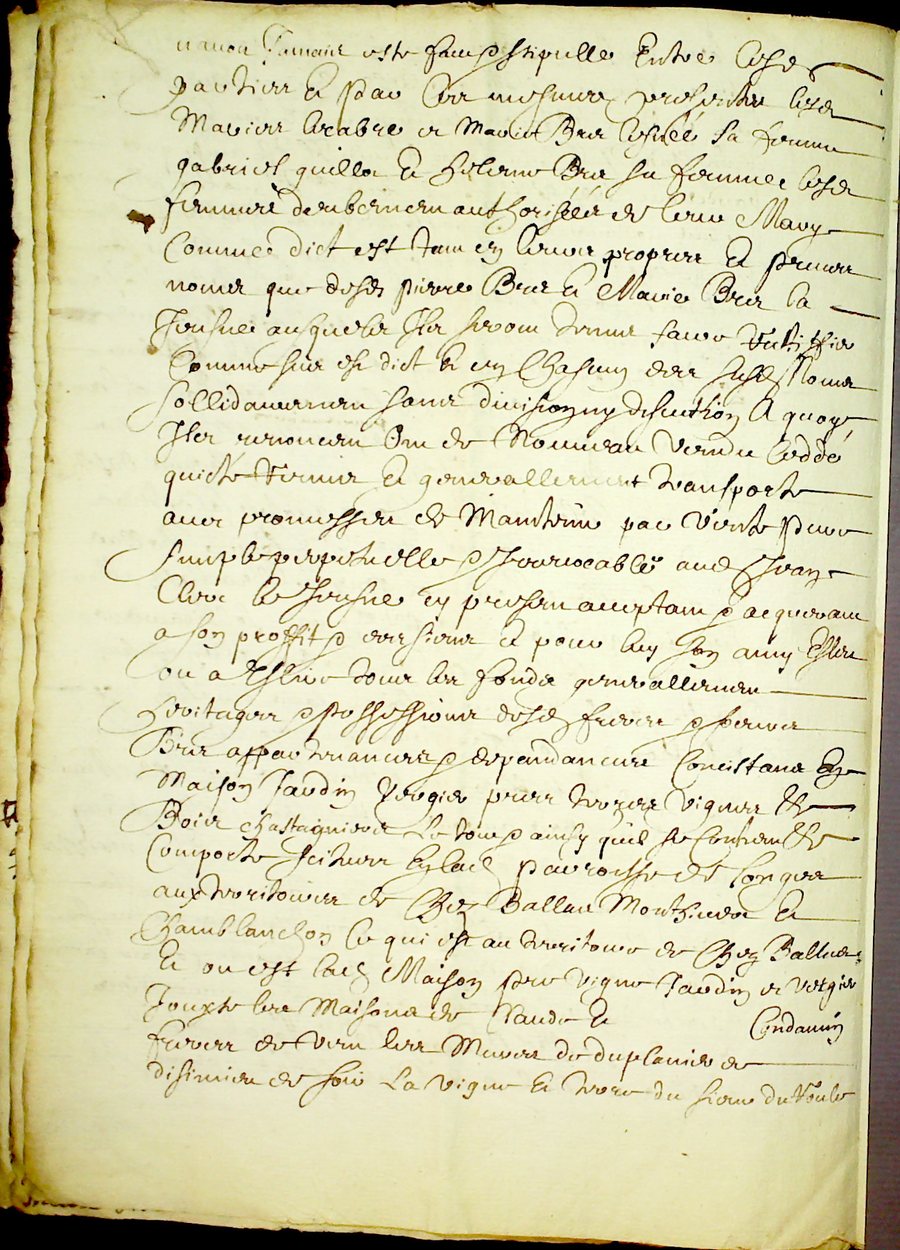 Jamais este faict p stipulle Entre lesds
partyes Et par les mesmes presentes lesds
Mariees et Marie Brue sa femme
gabriel quillet Et Brue sa femme lesds
femmes authorisées de leurs Marys
Comme dict est tant en leurs propres Et prives
noms que desds pierre Brue Et Marie Brue la
Jeusne ausquels Ils seront tenus faire Ratiffier
Comme sus est dict Et en Chascun des susds Noms
sollidairement sans division ny discution A quoy
Ils renoncent Ont de Nouveau vendu ceddé
quicte Remis Et generallement transporte
avec promesses de Maintenir par vente pure
simple perpetuelle & Irrevocable aud Jean
Clerc le Jeusne cy present acceptant & acquerant
a son proffit & des siens Et pour luy son amy Esleu
ou a Eslire tous les fonds generallement
heritages & possessions desds freres & seurs
Brue appartenances & despendances Concistant En
Maison Jardin Vergier prez terres vignes Et
Bois Chastagniers Le tout ainsy quil se Contient Et
Comporte scitues En lad parroisse de Longes
aux territoires de Chez Ballas Et
Chamblanchon Ce qui est au territoire de Chez Ballas
Et ou est lad Maison pre vigne Jardin et vergier
Jouxte les Maisons de Claude Et Condamin
freres de vent les Mures de duplanier de
de soir La vigne Et terre du sieur